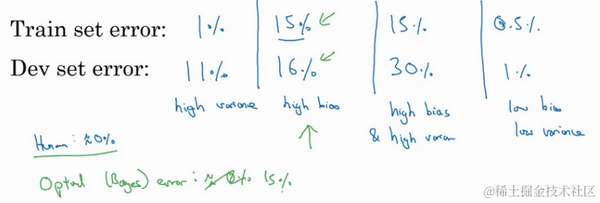 Train set error: 1% 15% 15% 0.5%
Dev set error: 11% 16% 30% 1%
high variance high bias high bias low bias
& high varian low variance
Human: ≈0%
Optimal (Bayes) error: 15%
@稀土掘金技术社区